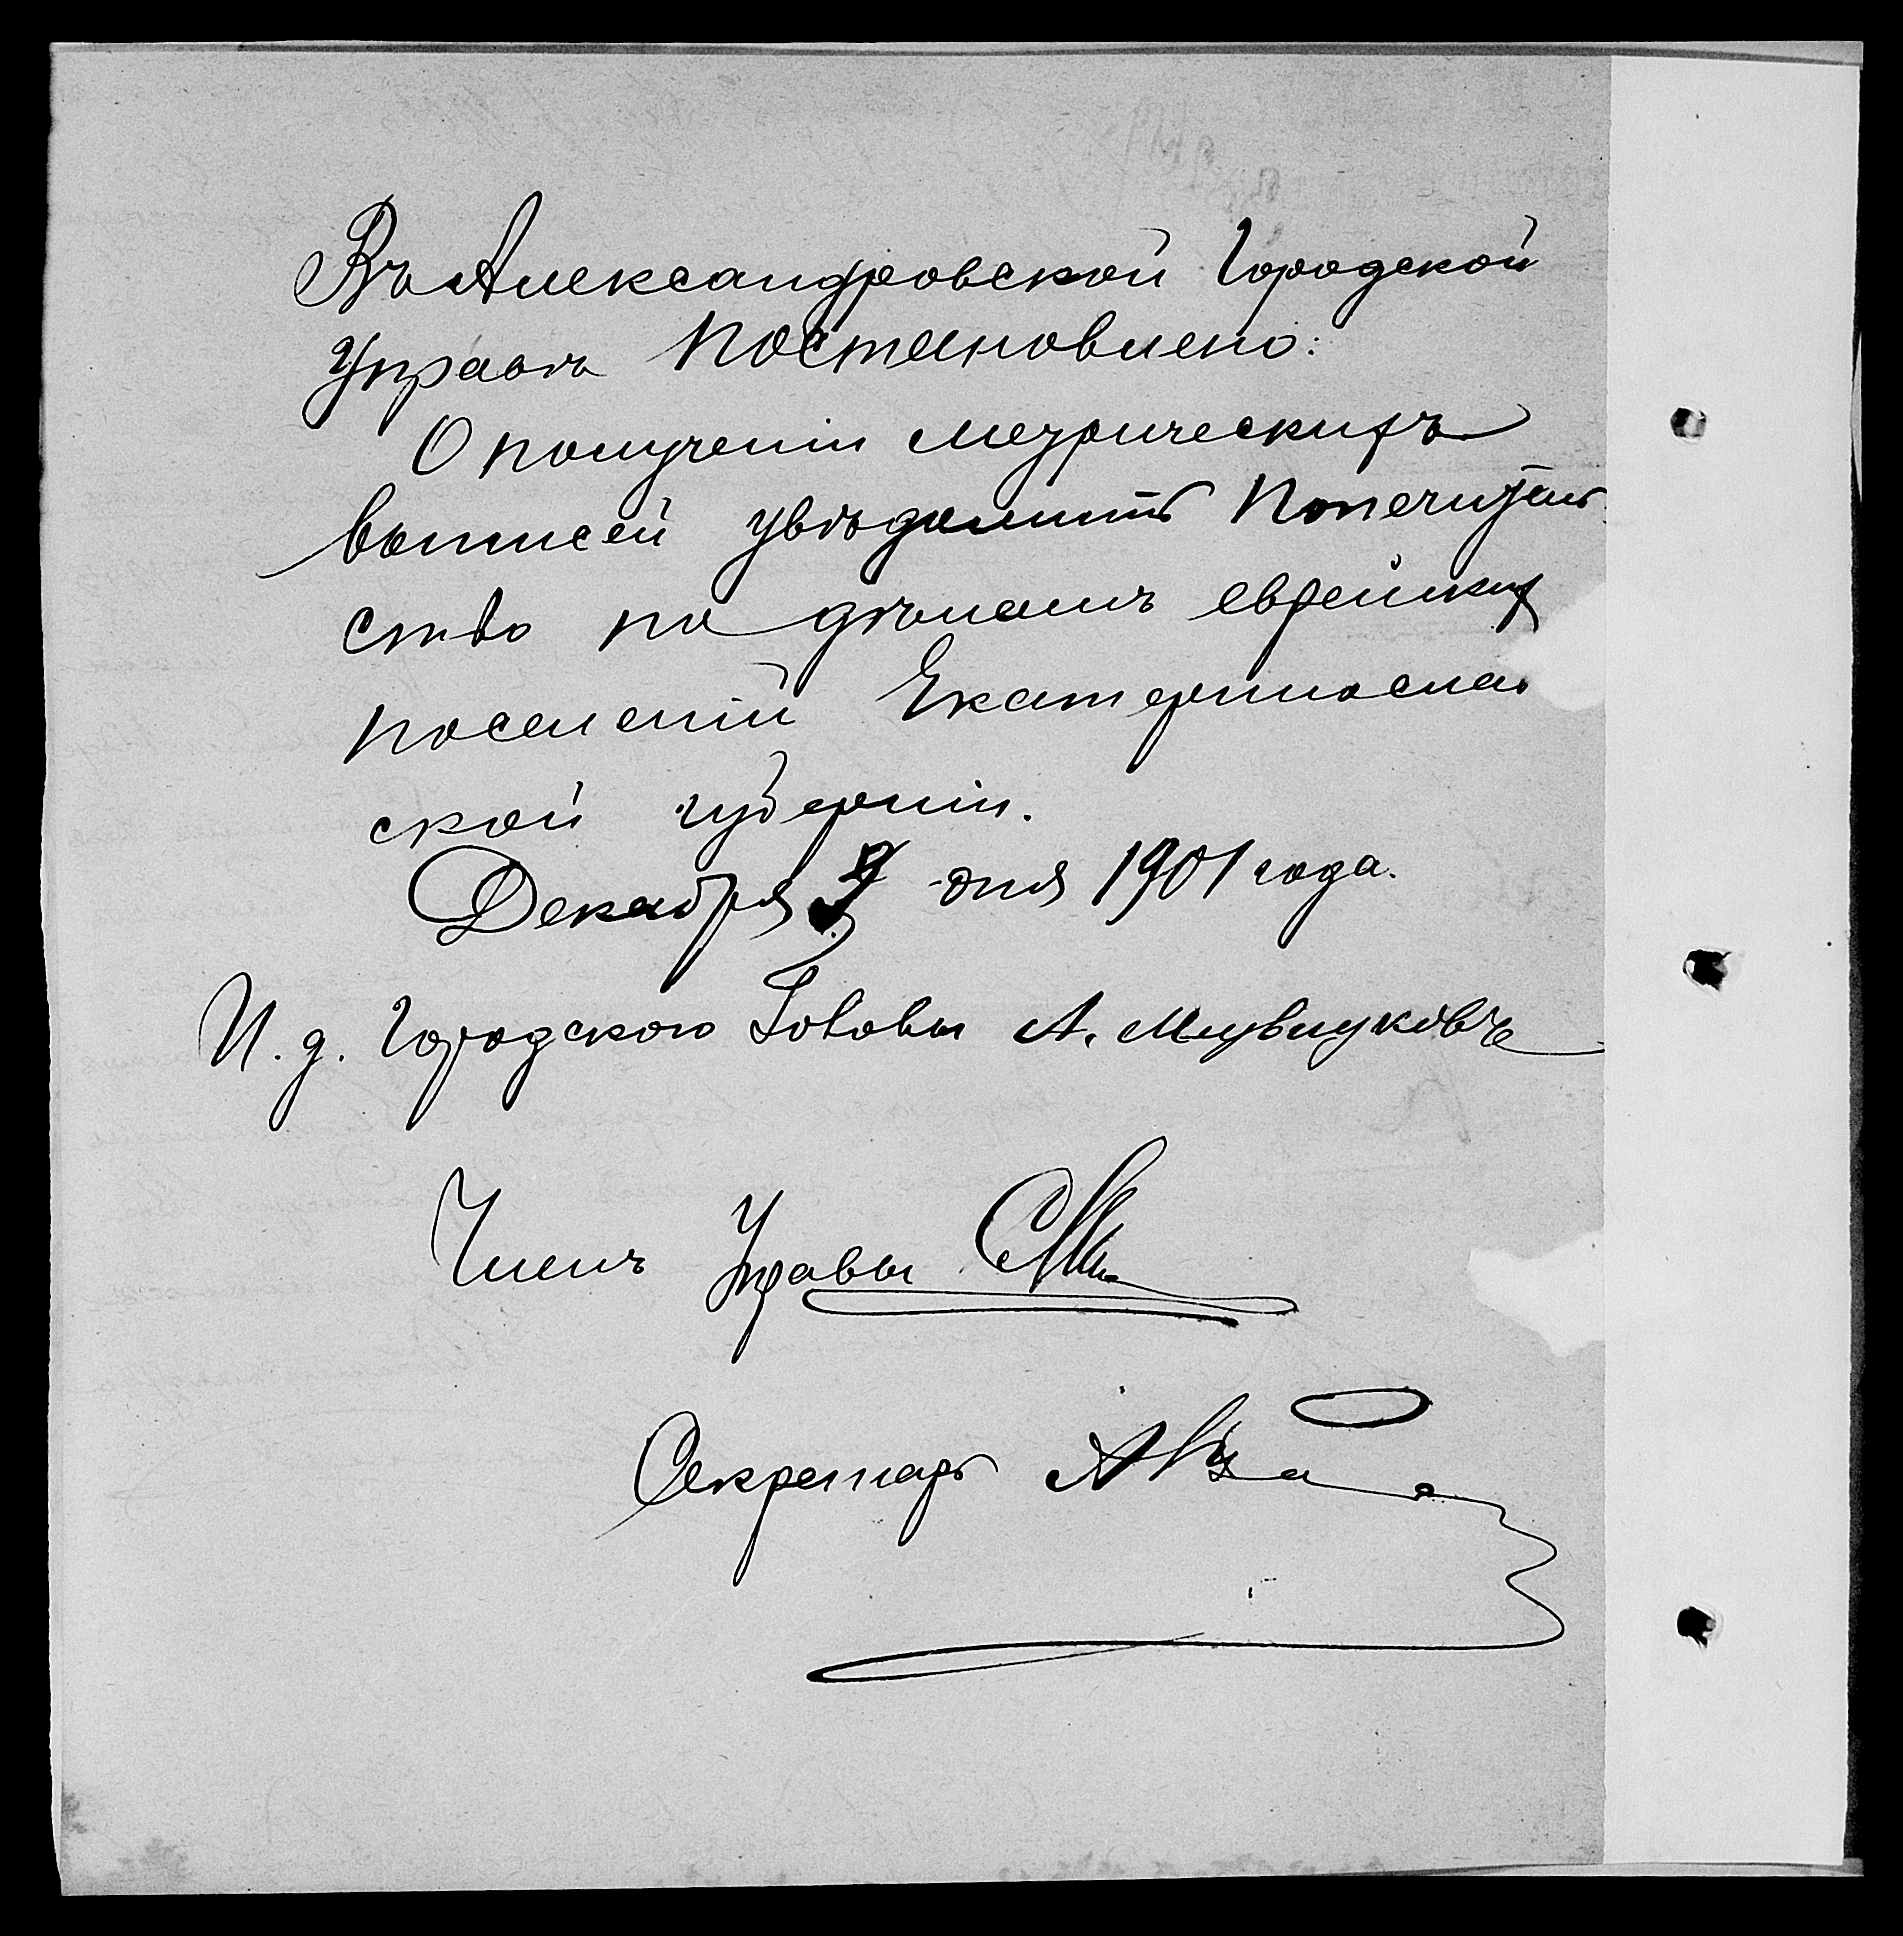 Въ Александровской Городской
Управѣ Постановлено:
О полученіи метрическихъ
выписей увѣдомить Попечитель
ство по дѣламъ еврейских
поселеній Екатеринослав
ской губерніи.
Декабря дня 1901 года.
И. д. Городского Головы А.
Членъ Управы
Секретарь А